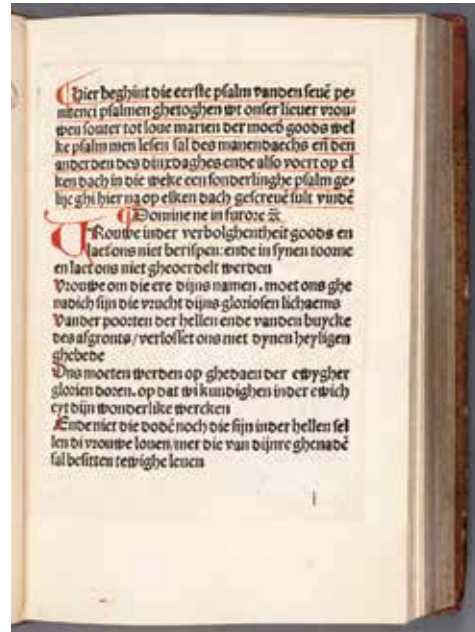 Hier beghint die eerste psalm vanden seuē pe-
nitenci psalmen ghetoghen wt onser lieuer vrou-
wen souter tot loue marien der moed goods wel
ke psalm men lesen sal des manendaechs eñ den
anderden des dinxdaghes ende also voert op el
ken dach in die weke een sonderlinghe psalm ge-
lijc ghi hier na op elken dach gescreuē sult vindē
Domine ne in furore ꝛc̄
VRouwe inder verbolghentheit goods en
laet ons niet berispen: ende in synen toorne
en laet ons niet gheoerdelt werden
Vrouwe om die ere dijns namen. moet ons ghe
nadich sijn die vrucht dijns gloriosen lichaems
Vander poorten der hellen ende vanden buycke
des afgronts / verlosset ons met dynen heyligen
ghebede
Ons moeten werden op ghedaen der ewygher
glorien doren. op dat wi kundighen inder ewich
eyt dijn wonderlike wercken
Ende niet die dodē noch die sijn inder hellen sel
len di vrouwe louen / mer die van dijnre ghenadē
sal besitten tewighe leuen